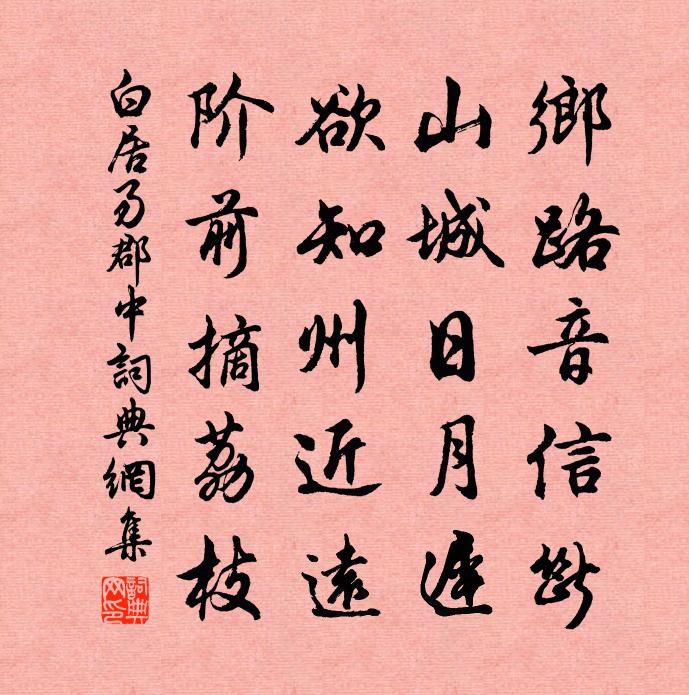 鄉路音信斷
山城日月遲
欲知州近遠
阶前摘荔枝
白居易郡中詞典網集
詞典网印